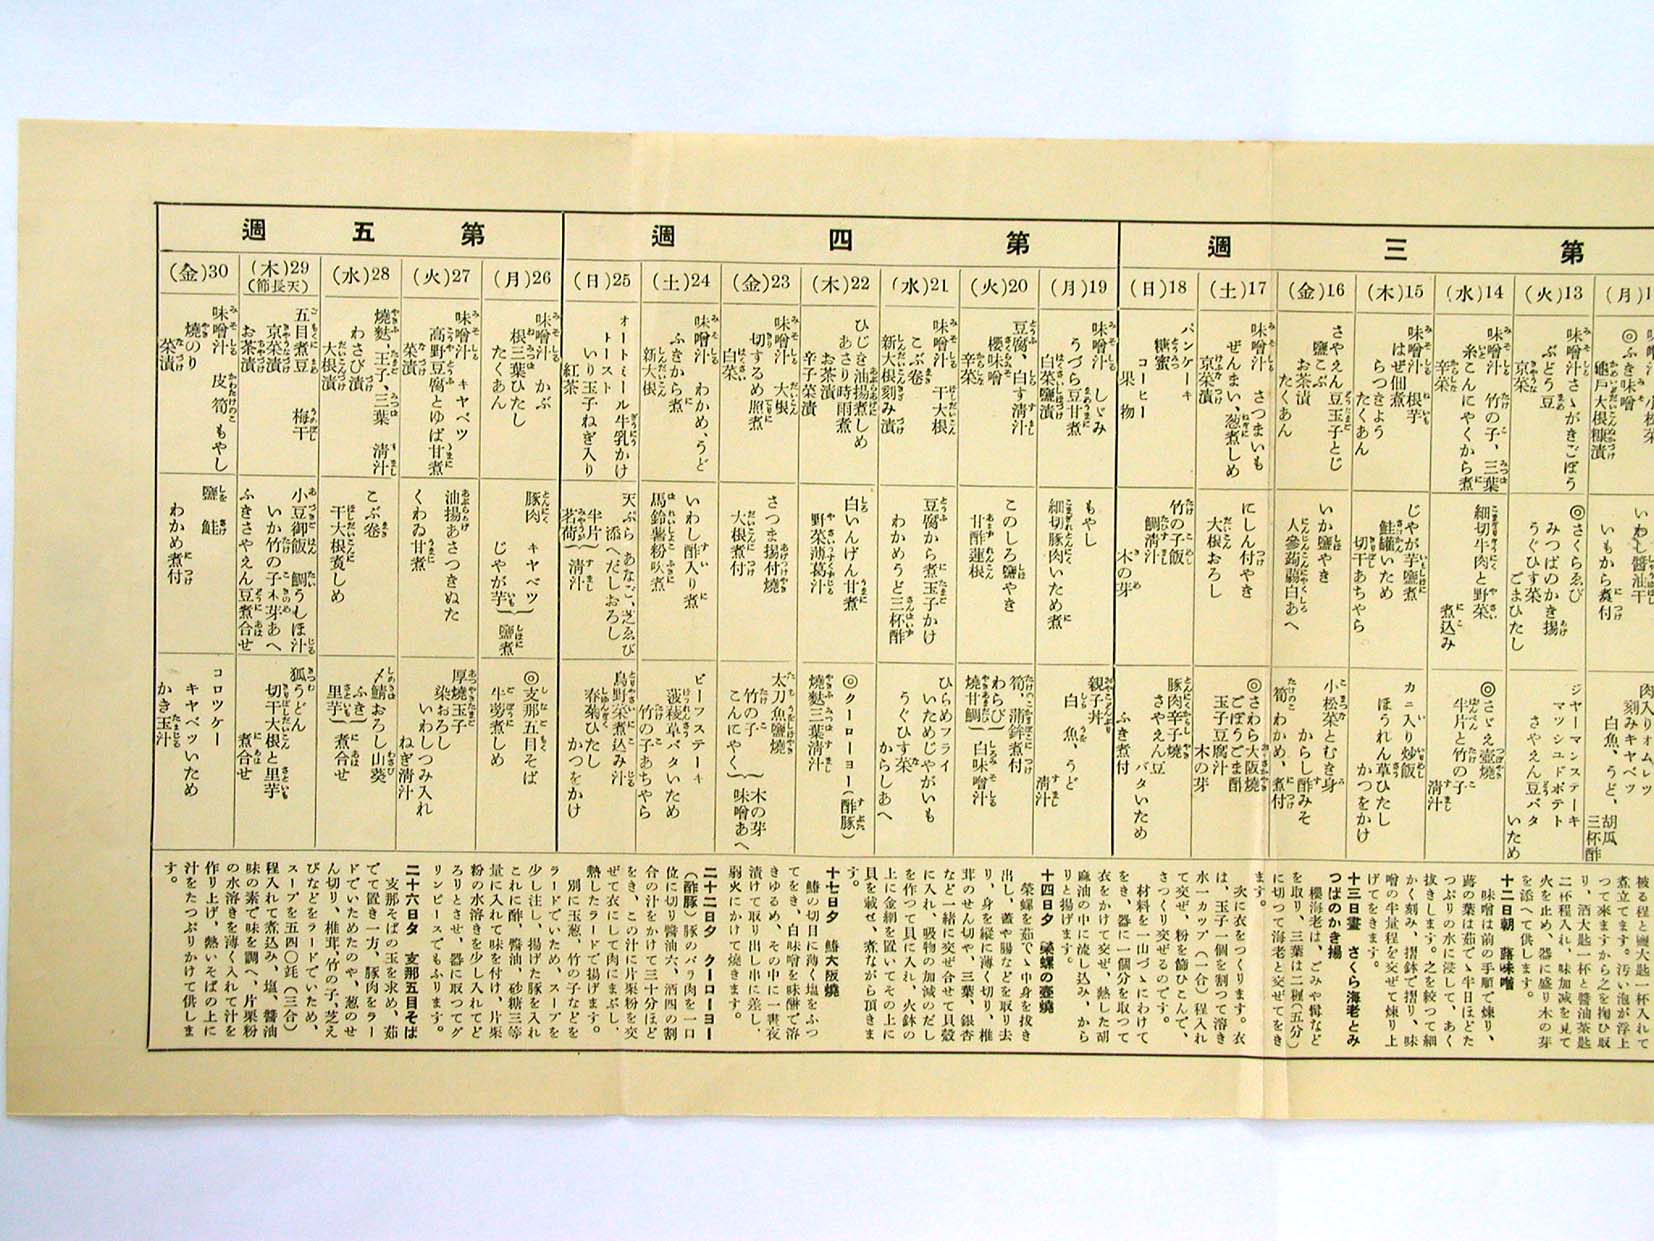 第三週
第四週
第五週
(月)1
◎ふき味噌
(火)13
味噌汁さゝがきごぼう
ぶどう豆
京菜漬
◎さくらゑび
みつばのかき揚
うぐひす菜
ごまひたし
ジヤーマンステーキ
マツシユドポテト
さやえん豆バタ
いため
(水)14
味噌汁 竹の子、三葉
糸こんにやくから煮
辛菜
細切牛肉と野菜
煮込み
◎さゞえ壺焼
半片と竹の子
清汁
(木)15
味噌汁 根芋
はぜ佃煮
らつきよう
たくあん
じやが芋鹽煮
鮭罐いため
切干あちやら
カニ入り炒飯
ほうれん草ひたし
かつをかけ
(金)16
さやえん豆玉子とじ
鹽こぶ
お茶漬
たくあん
いか鹽やき
人參蒟蒻白あへ
小松菜とむき身
からし酢みそ
筍、わかめ、煮付
(土)17
味噌汁 さつまいも
ぜんまい、葱煮しめ
京菜漬
にしん付やき
大根おろし
◎さわら大阪燒
ごぼうごま酢
玉子豆腐汁
木の芽
(日)18
パンケーキ
糖蜜
コーヒー
果物
竹の子飯
鯛清汁
木の芽
豚肉辛子燒
さやえん豆
バタいため
ふき煮付
(月)19
味噌汁 しゞみ
うづら豆甘煮
白菜鹽漬
もやし
細切豚肉いため煮
親子丼
白魚、うど
清汁
(火)20
豆腐、白す清汁
櫻味噌
辛菜
このしろ鹽やき
甘酢蓮根
筍、蒲鉾煮付
わらび
燒甘鯛
白味噌汁
(水)21
味噌汁 干大根
こぶ卷
新大根刻み漬
豆腐から煮玉子かけ
わかめうど三杯酢
ひらめフライ
いためじやがいも
うぐひす菜
からしあへ
(木)22
ひじき油揚煮しめ
あさり時雨煮
お茶漬
辛子菜漬
白いんげん甘煮
野菜薄葛汁
◎クーローヨー(酢豚)
燒麩三葉清汁
(金)23
味噌汁 大根
切するめ照煮
白菜
さつま揚付燒
大根煮付
太刀魚鹽燒
竹の子
こんにやく
木の芽
味噌あへ
(土)24
味噌汁 わかめ、うど
ふきから煮
新大根
いわし酢入り煮
馬鈴薯粉吹煮
ビーフステーキ
菠薐草バタいため
竹の子あちやら
(日)25
オートミール牛乳かけ
トースト
いり玉子ねぎ入り
紅茶
天ぷら あなご、芝ゑび
添へだしおろし
半片
茗荷
清汁
鳥野菜煮込み汁
春菊ひたし
かつをかけ
(月)26
味噌汁 かぶ
根三葉ひたし
たくあん
豚肉 キヤベツ
じやが芋
鹽煮
◎支那五目そば
牛蒡煮しめ
(火)27
味噌汁 キヤベツ
高野豆腐とゆば甘煮
菜漬
油揚あさつきぬた
くわゐ甘煮
厚燒玉子
染おろし
いわしつみ入れ
ねぎ清汁
(水)28
燒麩、玉子、三葉 清汁
わさび漬
大根漬
こぶ卷
干大根煮しめ
〆鯖おろし山葵
ふき
里芋
煮合せ
(木)29
(天長節)
五目煮豆 梅干
京菜漬
お茶漬
小豆御飯 鯛うしほ汁
いか竹の子木の芽あへ
ふきさやえん豆煮合せ
狐うどん
切干大根と里芋
煮合せ
(金)30
味噌汁 皮筍 もやし
燒のり
菜漬
鹽鮭
わかめ煮付
コロツケー
キヤベツいため
かき玉汁
煮立てます。汚い泡が浮上
つて來ますから之を掬ひ取
り、酒大匙一杯と醬油茶匙
二杯程入れ 味加減を見て
火を止め、器に盛り木の芽
を添へて供します。
十二日朝 蕗味噌
味噌は前の手順で煉り、
蕗の葉は茹でゝ半日ほどた
つぷりの水に浸して、あく
拔きします。之を絞つて細
かく刻み、摺鉢で摺り、味
噌の半量程を交ぜて煉り上
げてをきます。
十三日晝 さくら海老とみ
つばのかき揚
櫻海老は、ごみや髯など
を取り、三葉は二糎(五分)
に切つて海老と交ぜてをき
ます。
次に衣をつくります。衣
は、玉子一個を割つて溶き
水一カップ(一合)程入れ
て交ぜ、粉を篩ひこんで、
さつくり交ぜるのです。
材料を一山づゝにわけて
をき、器に一個分を取つて
衣をかけて交ぜ、熱した胡
麻油の中に流し込み、から
りと揚げます。
十四日夕 榮螺の壺燒
榮螺を茹でゝ中身を拔き
出し、蓋や腸などを取り去
り、身を縱に薄く切り、椎
茸のせん切や、三葉、銀杏
など一緒に交ぜ合せて貝殼
に入れ、吸物の加減のだし
を作つて貝に入れ、火鉢の
上に金網を置いてその上に
貝を載せ、煮ながら頂きま
す。
十七日夕 鰆大阪燒
鰆の切目に薄く塩をふつ
てをき、白味噌を味醂で溶
きゆるめ、その中に一晝夜
漬けて取り出し串に差し、
弱火にかけて燒きます。
二十二日夕 クーローヨー
(酢豚)豚のバラ肉を一口
位に切り醬油六、酒四の割
合の汁をかけて三十分ほど
をき、この汁に片栗粉を交
ぜて衣にして肉にまぶし、
熱したラードで揚げます。
別に玉葱、竹の子などを
ラードでいため、スープを
少し注し、揚げた豚を入れ
これに酢、醬油、砂糖三等
量に入れて味を付け、片栗
粉の水溶きを少し入れてど
ろりとさせ、器に取つてグ
リンピースでもふります。
二十六日夕 支那五目そば
支那そばの玉を求め、茹
でて置き一方、豚肉をラー
ドでいためたのや、葱のせ
ん切り、椎茸、竹の子、芝え
びなどをラードでいため、
スープを五四〇竓(三合)
程入れて煮込み、塩、醬油
味の素で味を調へ、片栗粉
の水溶きを薄く入れて汁を
作り上げ、熱いそばの上に
汁をたつぷりかけて供しま
す。